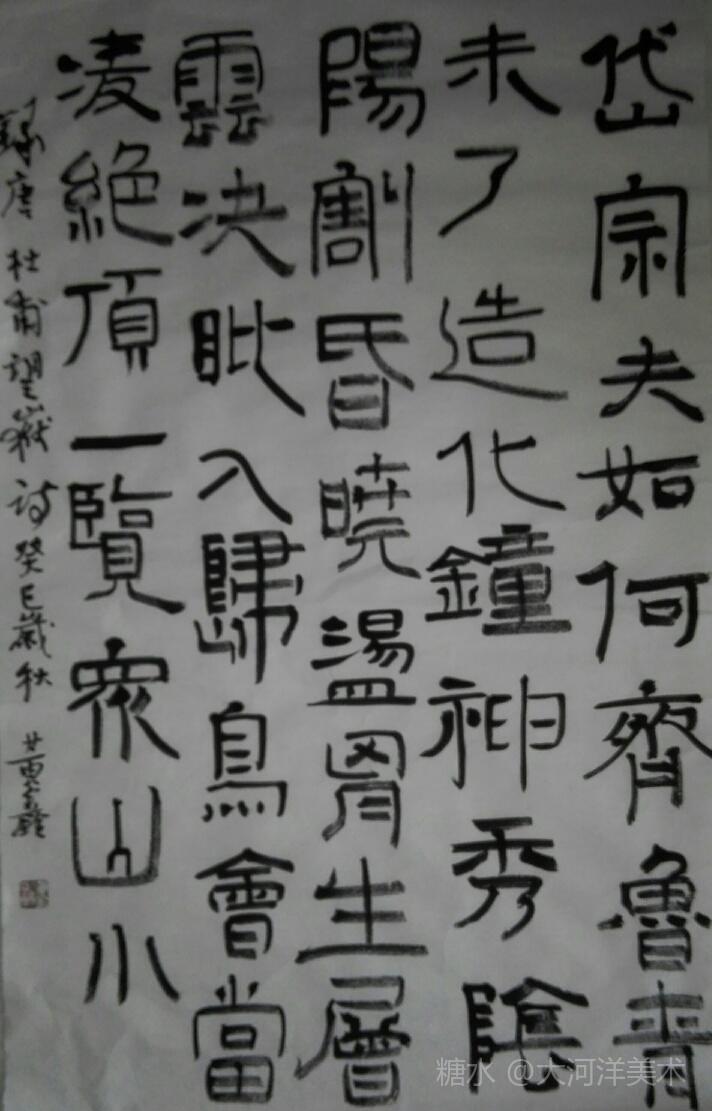 岱宗夫如何齊魯青
未了造化鐘神秀陰
陽割昏曉盪胷生層
雲決眦入歸鳥會當
凌絕頂一覽衆山小
錄唐杜甫望嶽詩癸巳歲秋
糖水 @大河洋美术